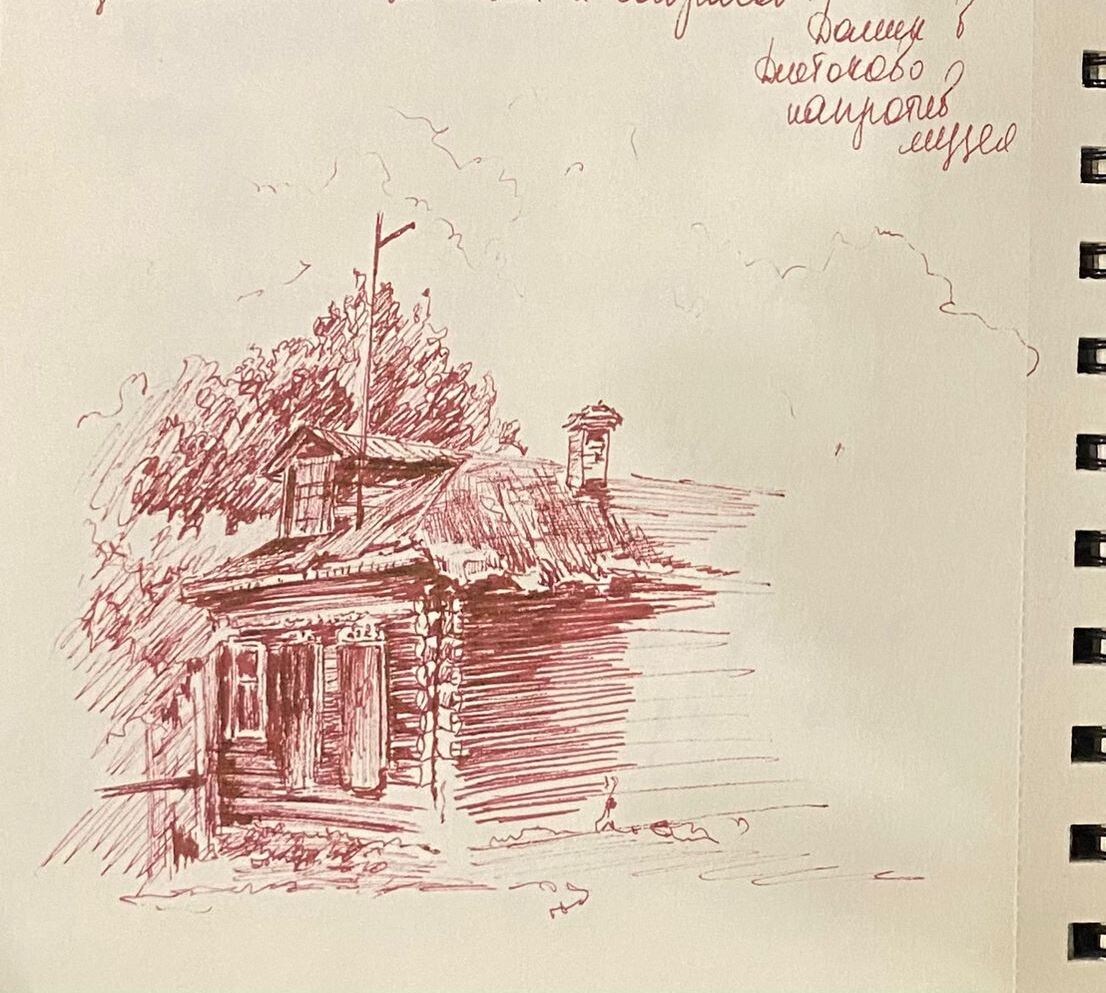 Домик в
Дютьково
напротив
музея